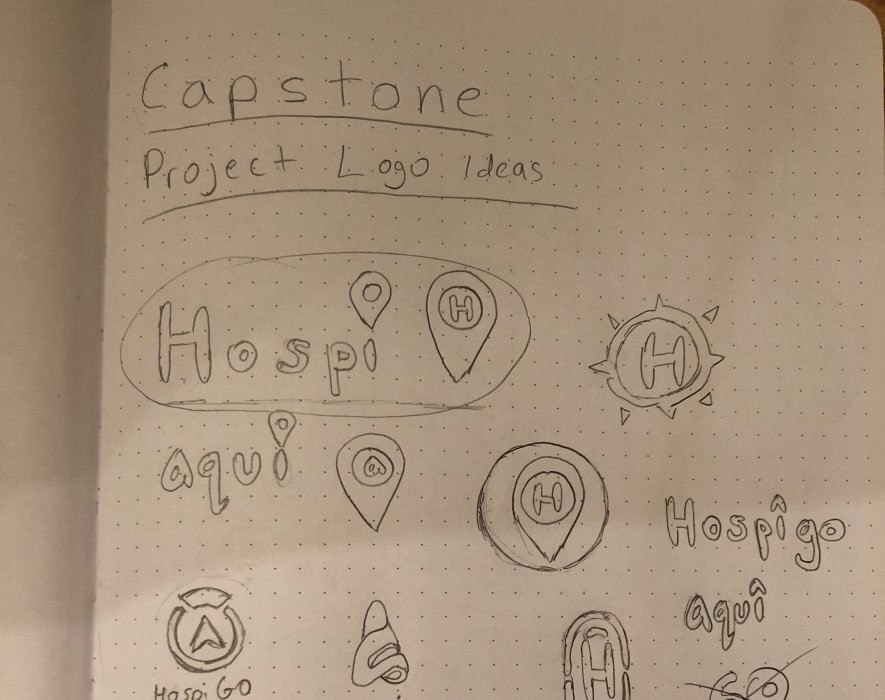 Capstone
Project Logo Ideas
Hospi
H
H
aqui
a
H
Hospîgo
aquî
Hospi GO
H
GO